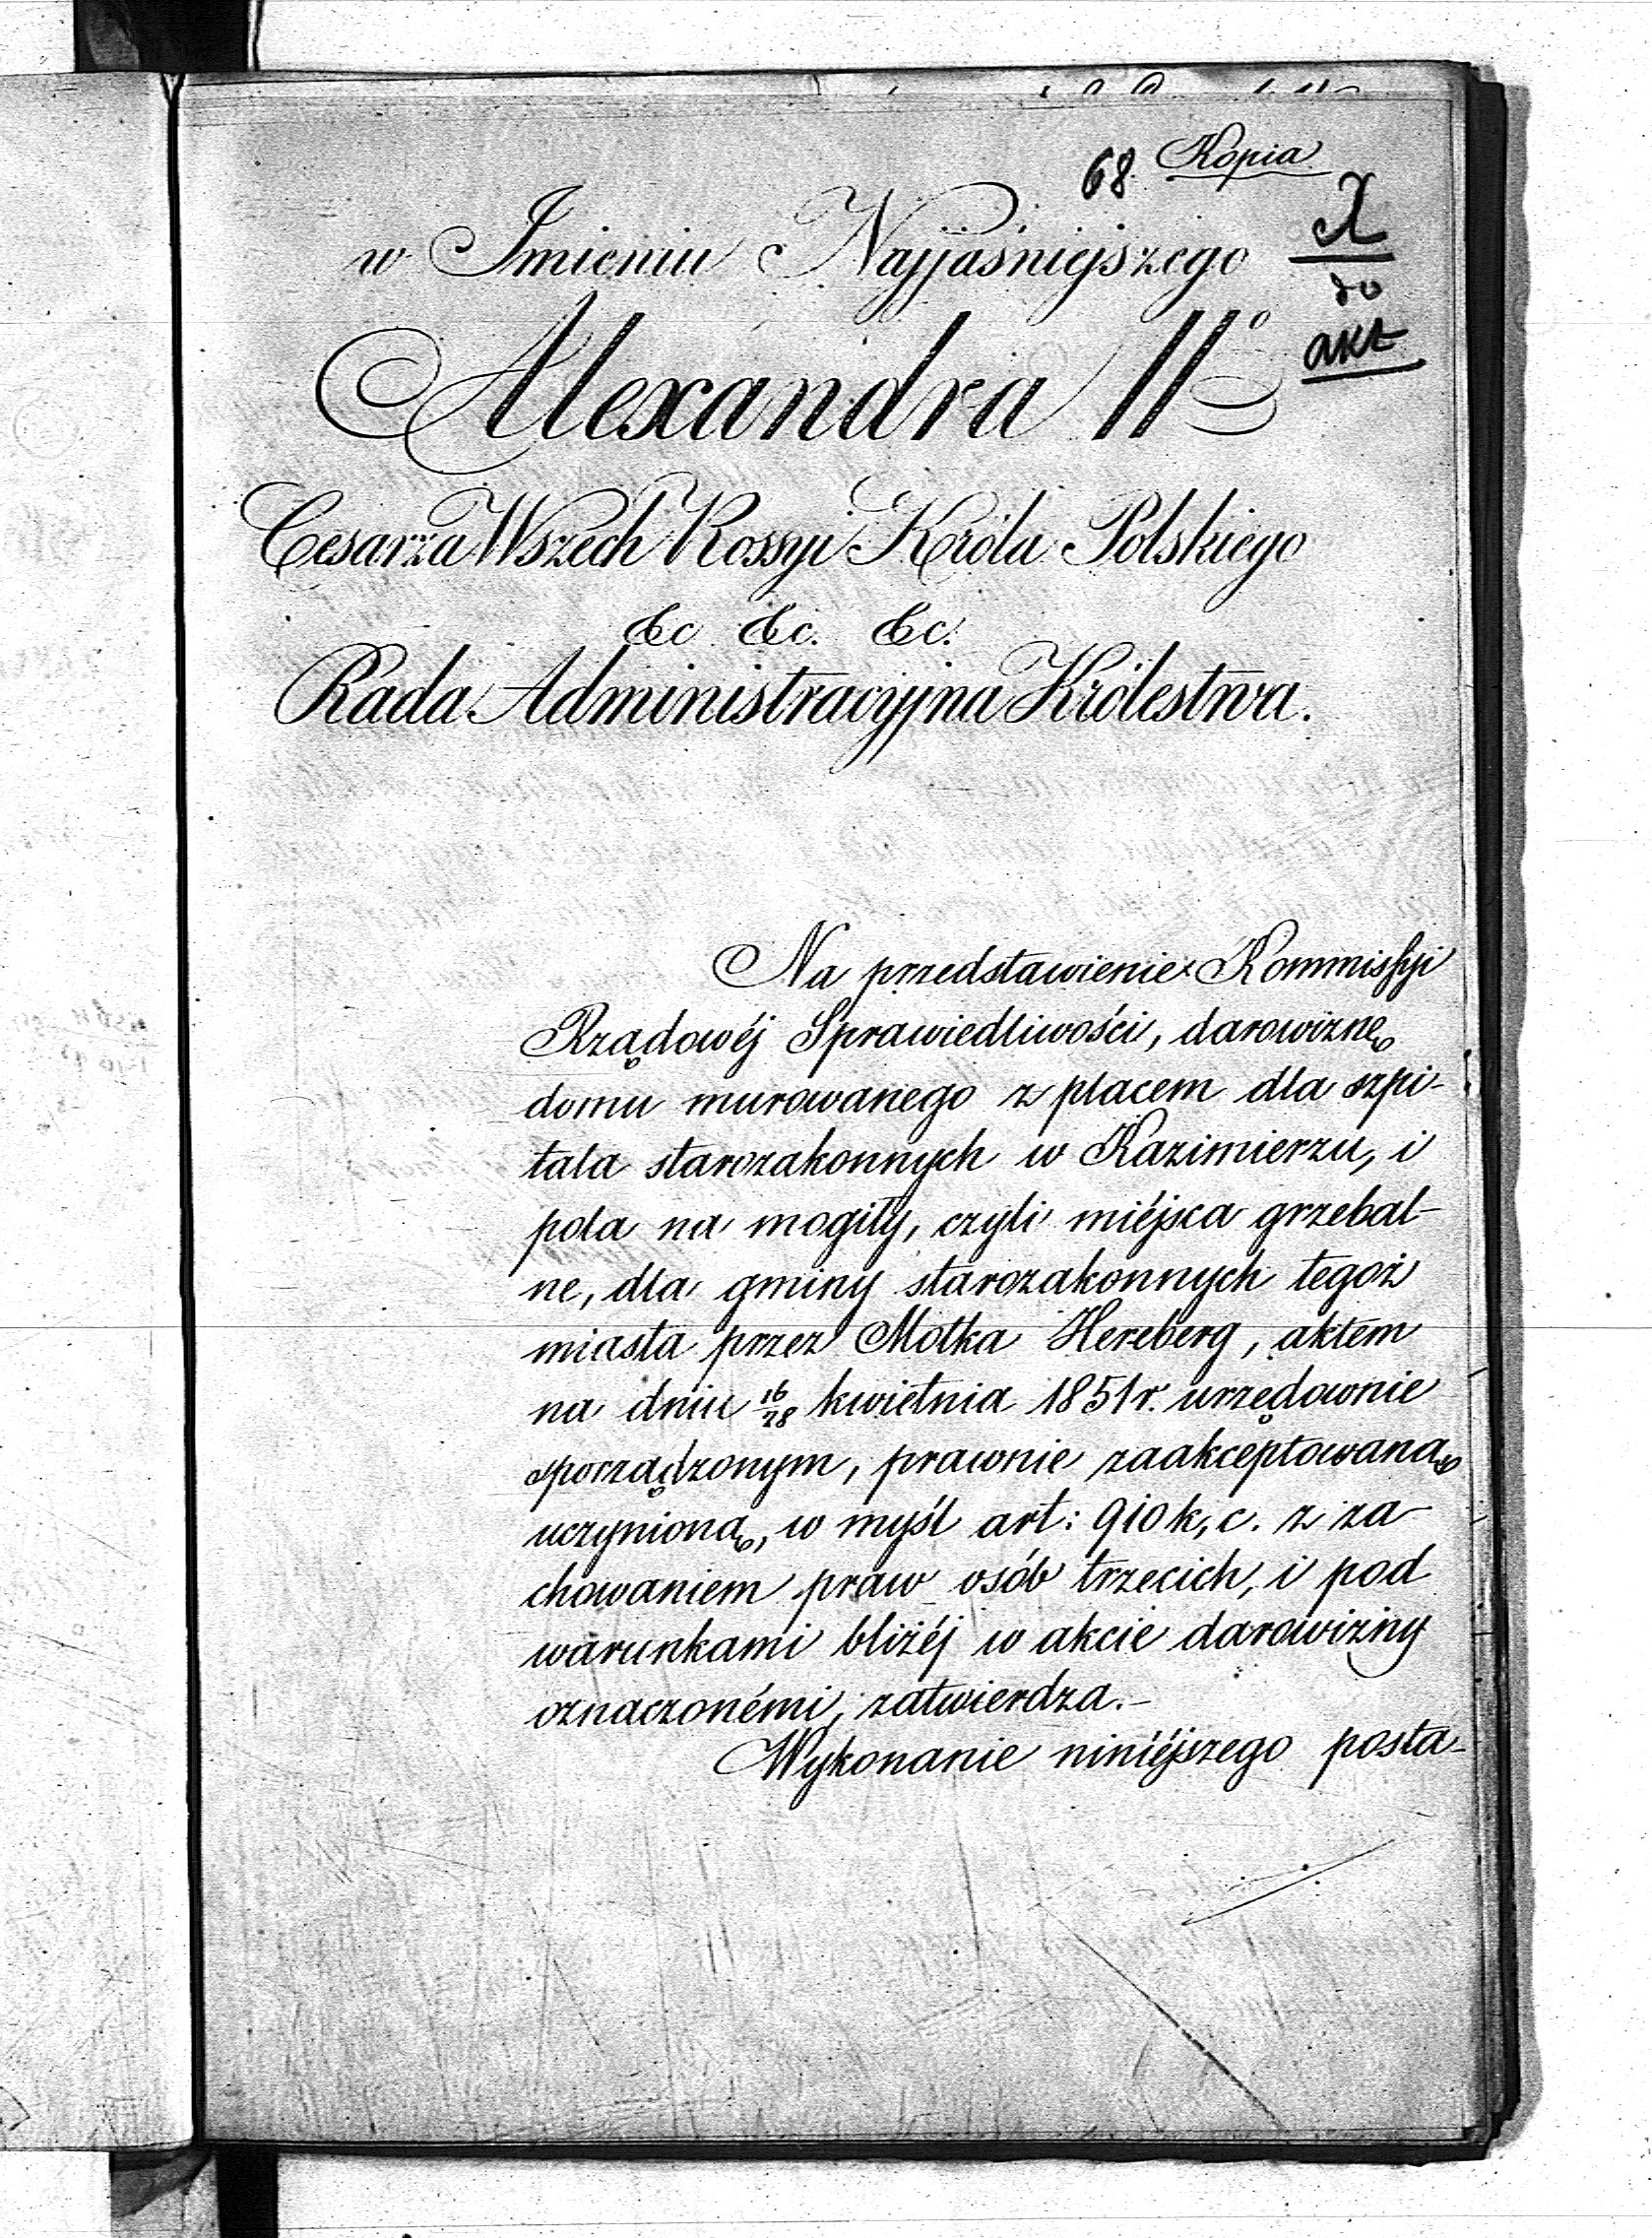 68. Kopia
w Imieniu Najjaśniejszego
do
akt
Alexandra IIº
Cesarza Wszech Rossyi Króla Polskiego
&c &c. &c.
Rada Administracyjna Królestwa.
Na przedstawienie Kommissyi
Rządowéj Sprawiedliwości, darowiznę
domu murowanego z placem dla szpi-
tala starozakonnych w Kazimierzu, i
pola na mogiły, czyli miéjsca grzebal-
ne, dla gminy starozakonnych tegoż
miasta przez Motka Hereberg, aktem
na dniu 16/28 kwietnia 1851 r. urzędownie
sporządzonym, prawnie zaakceptowaną
uczynioną, w myśl art: 910 k, c. z za-
chowaniem praw osób trzecich, i pod
warunkami bliżéj w akcie darowizny
oznaczonémi, zatwierdza.-
Wykonanie niniéjszego posta-